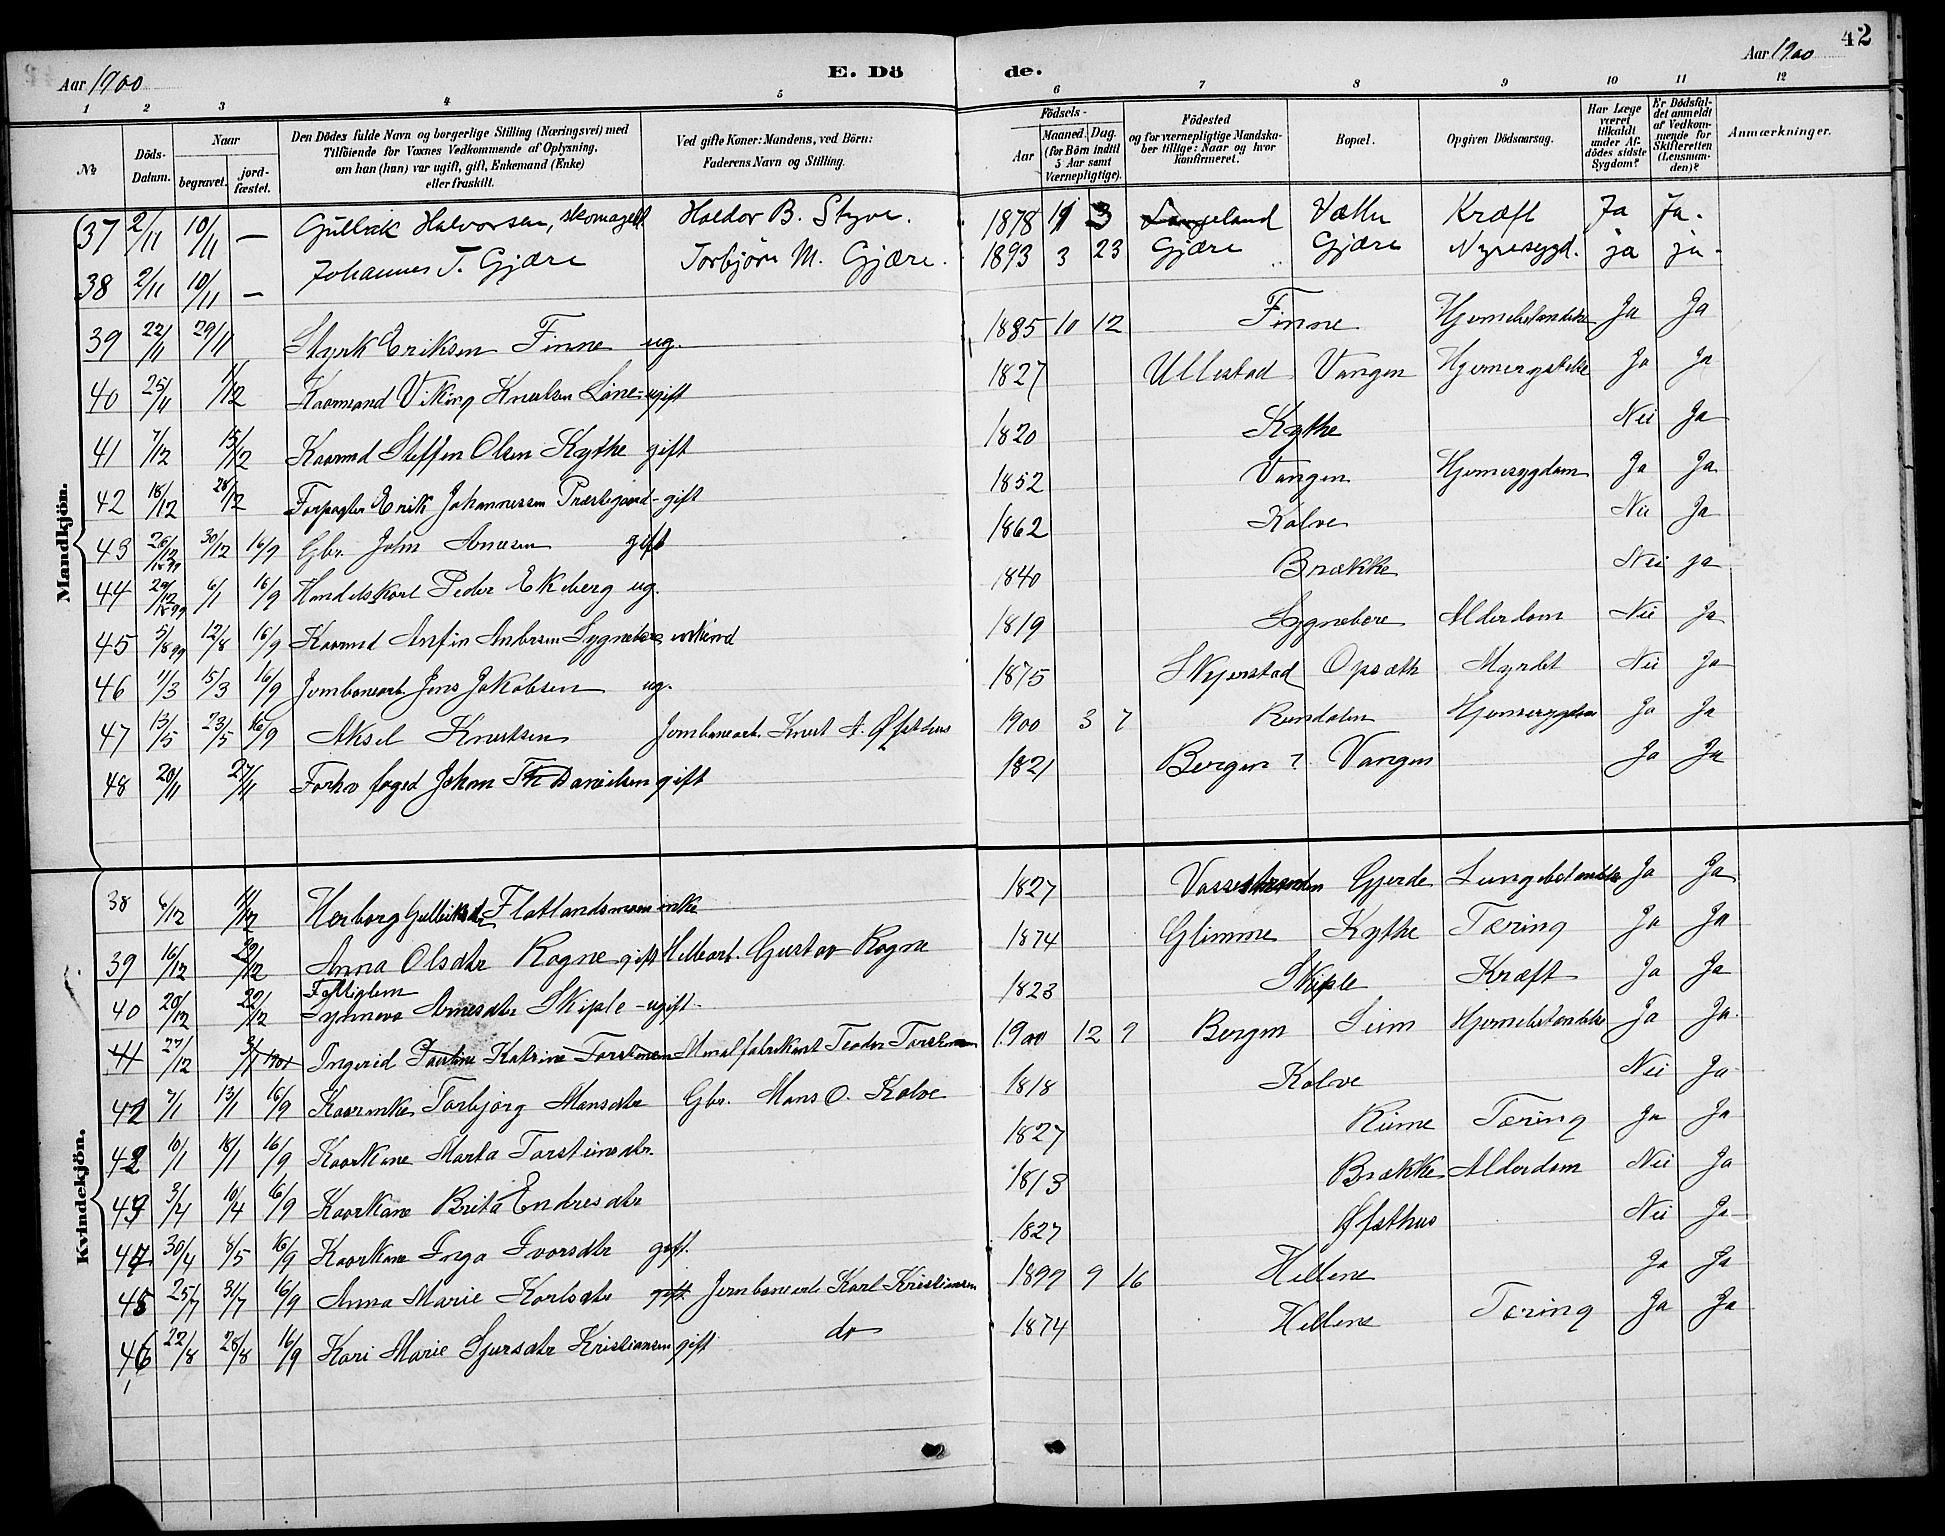 42
Aar 1900
E. Dö
de.
Aar 1900
1 2 3 4 5 6 7 8 9 10 11 12
№
Döds-Datum.
Naar
begravet.
jord-fæstet.
Den Dödes fulde Navn og borgerlige Stilling (Næringsvei) med
Tilföiende for Voxnes Vedkommende af Oplysning,
om han (hun) var ugift, gift, Enkemand (Enke)
eller fraskilt.
Ved gifte Koner: Mandens, ved Börn:
Faderens Navn og Stilling.
Födsels-
Aar
Maaned. Dag.
(for Börn indtil
5 Aar samt
Værnepligtige).
Födested
og for værnepligtige Mandska-
ber tillige: Naar og hvor
konfirmeret.
Bopæl.
Opgiven Dödsaarsag.
Har Læge
været
tilkaldt
under Af-
dödes sidste
Sygdom?
Er Dödsfal-
det anmeldt
af Vedkom-
mende for
Skifteretten
(Lensman-
den)?
Anmærkninger.
Mandkjön.
37 2/11 10/11 — Gullick Halvorsen, skomager Haldor B. Styve. 1878 11 3 Langeland Vælle Kræft Ja Ja.
38 2/11 10/11 — Johannes T. Gjære Torbjörn M. Gjære. 1893 3 23 Gjære Gjære Nyresygd. ja ja.
39 22/11 29/11 Styrk Eriksen Finne ug. 1885 10 12 Finne Hjernebetændelse Ja Ja
40 25/11 1/12 Kaarmand Viking Knutsen Löne ugift 1827 Ullestad Vangen Ja Ja
41 7/12 15/12 Kaarmd Steffen Olsen Kythe gift 1820 Kythe Nei Ja
42 18/12 28/12 Forpagter Erik Johannessen Præstegaard - gift 1852 Vangen Hjernesygdom Ja Ja
43 26/12 1899 30/12 16/9 Gbr. John Arnesen gift 1862 Kolve Nei Ja
44 29/12 1899 6/1 16/9 Handelskarl Peder Ekeberg ug. 1840 Brække Nei ja
45 5/8 99 12/8 16/9 Kaarmd Anfin Andersen Sygnebere enkemd 1819 Sygnebere Alderdom Nei Ja
46 7/3 15/3 16/9 Jernbanearb. Jens Jakobsen ug. 1875 Skjerstad Opsæth Myrdet Nei Ja
47 13/5 23/5 16/9 Aksel Knutsen Jernbanearb. Knut A. Øfsthus 1900 3 7 Rundalen Hjernesygdom Ja Ja
48 20/11 27/11 Forhv foged Johan Th Danielsen gift 1821 Bergen ? Vangen Ja Ja
Kvindekjön.
38 6/12 11/12 Herborg Gulleiksdtr Flatlandsmoen enke 1827 Vossestranden Gjerde Lungebetændelse Ja Ja
39 16/12 22/12 Anna Olsdtr Rogne gift Gustav Rogne 1874 Glimme Kythe Tæring Ja Ja
40 20/12 29/12 Fattiglem Synneva Arnesdtr Skiple - ugift - 1823 Skiple Kræft Ja Ja
41 27/12 3/1 1901 Ingerid Katrine Torstensen Teodor Torstensen 1900 12 9 Bergen Seim Hjernebetændelse Ja Ja
42 7/1 13/1 16/9 Kaarenke Torbjørg Monsdtr Gbr. Mons O. Kolve 1818 Kolve Nei Ja
42 10/1 18/1 16/9 Kaarkone Marta Torsteinsdtr. 1827 Rime Tæring Ja Ja
43 3/4 10/4 16/9 Kaarkone Brita Endresdtr 1813 Brække Alderdom Nei Ja
44 30/4 8/5 16/9 Kaarkone Inga Ivarsdtr gift. 1827 Øfsthus Nei Ja
45 25/7 31/7 16/9 Anna Marie Karlsdtr gift Jernbanearb Karl Kristiansen 1899 9 16 Hellene Ja Ja
46 22/8 28/8 16/9 Kari Marie Sjursdtr Kristiansen gift do 1874 Hellene Tæring Ja Ja